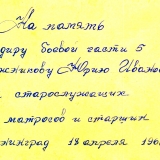 На память
диру боевой части 5
жникову Юрию Ивано
старослужащих
матросов и старшин
нинград 18 апреля 196